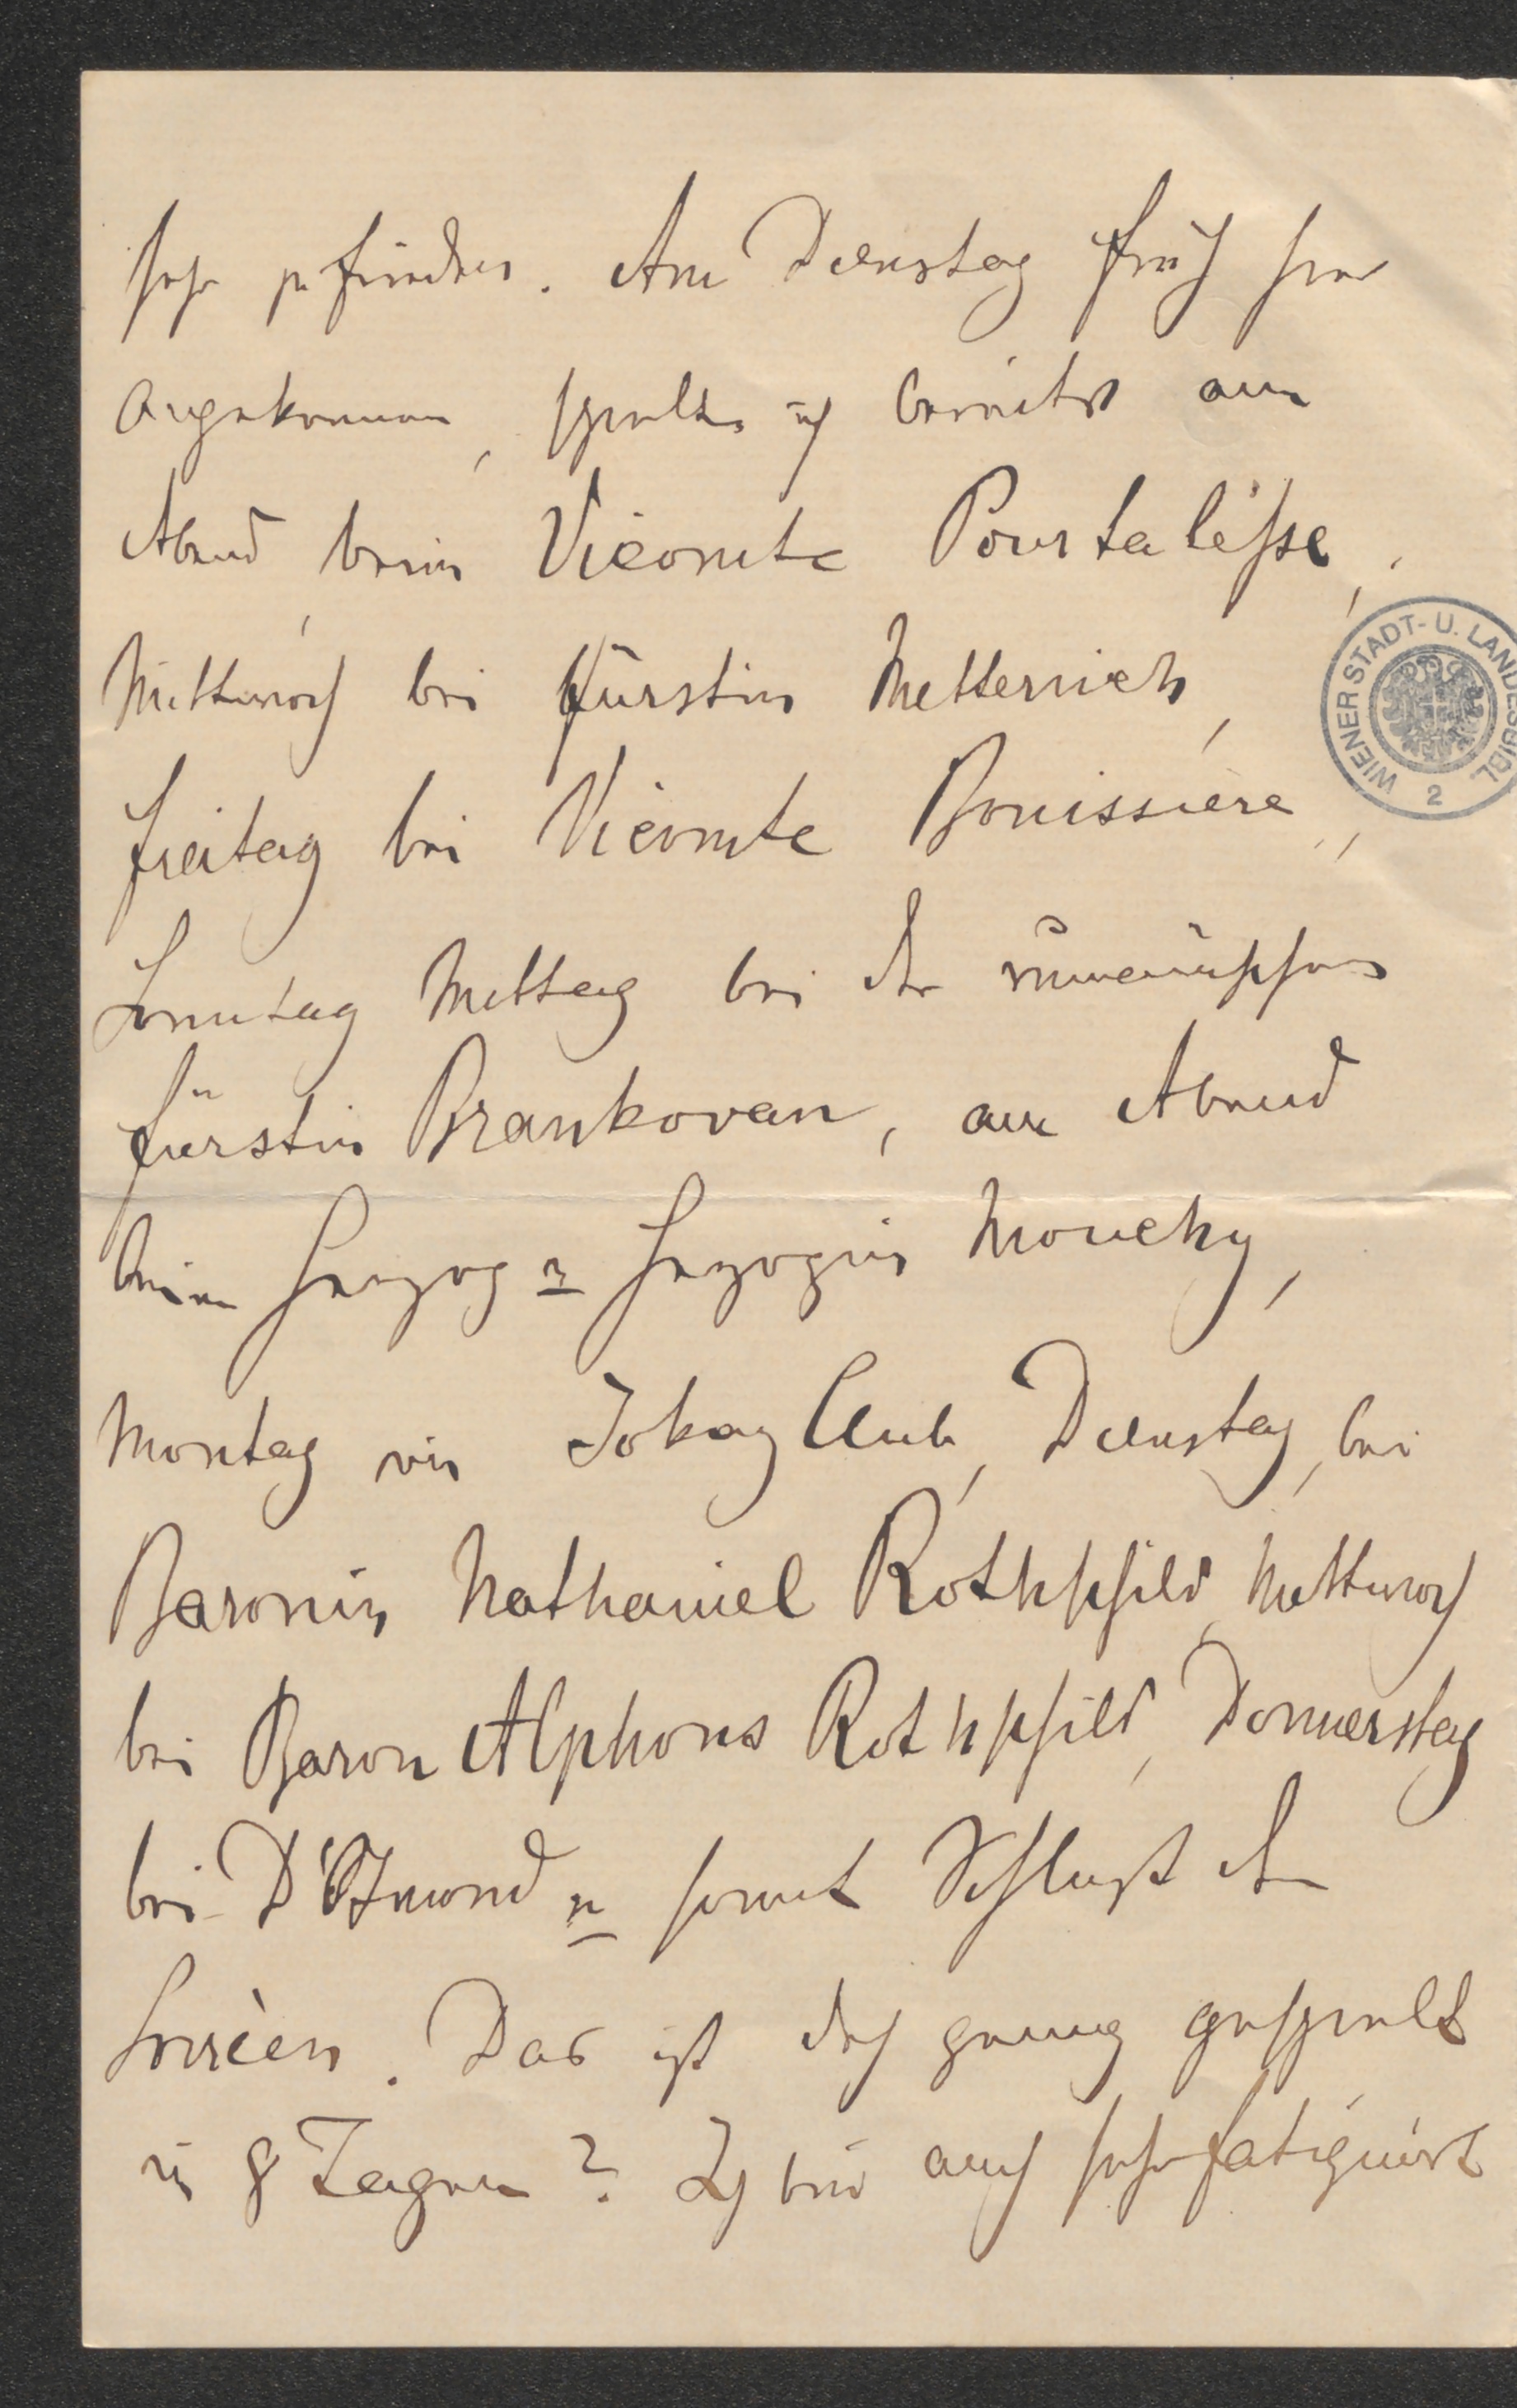 sehr zufrieden. Am Dienstag früh hier
angekommen, spielte ich bereits am
Abend beim Vicomte Pourtalèsse,
Mittwoch bei Fürstin Metternich,
Freitag bei Vicomte Bouissière,
Sonntag Mittag bei der rumänischen
Fürstin Brankovan, am Abend
beim Herzog u Herzogin Mouchy,
Montag im Jokay Club, Dienstag, bei
Baronin Nathaniel Rothschild, Mittwoch
bei Baron Alphons Rothschild, Donnerstag
bei D'Osmond u somit Schluß der
Soiréen. Das ist doch genug gespielt
in 8 Tagen? Ich bin auch sehr fatiguirt
WIENER STADT- U. LANDESBIBL.
2